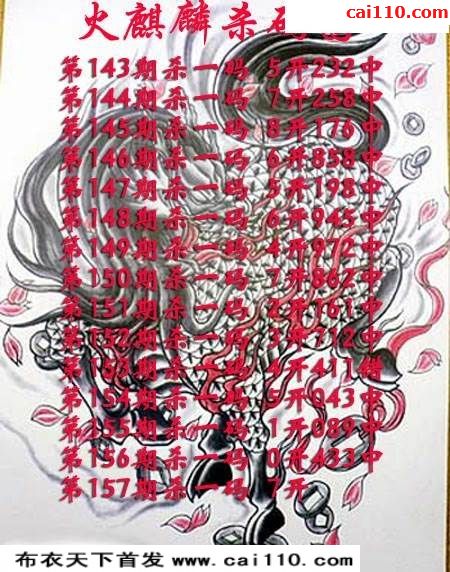 cai110.com
火麒麟杀码
第143期杀一码 5开232中
第144期杀一码 7开258中
第145期杀一码 8开176中
第146期杀一码 6开858中
第147期杀一码 5开198中
第148期杀一码 6开945中
第149期杀一码 4开972中
第150期杀一码 7开862中
第151期杀一码 2开161中
第152期杀一码 3开712中
第153期杀一码 4开411错
第154期杀一码 5开043中
第155期杀一码 1开089中
第156期杀一码 0开433中
第157期杀一码 7开
布衣天下首发 www.cai110.com